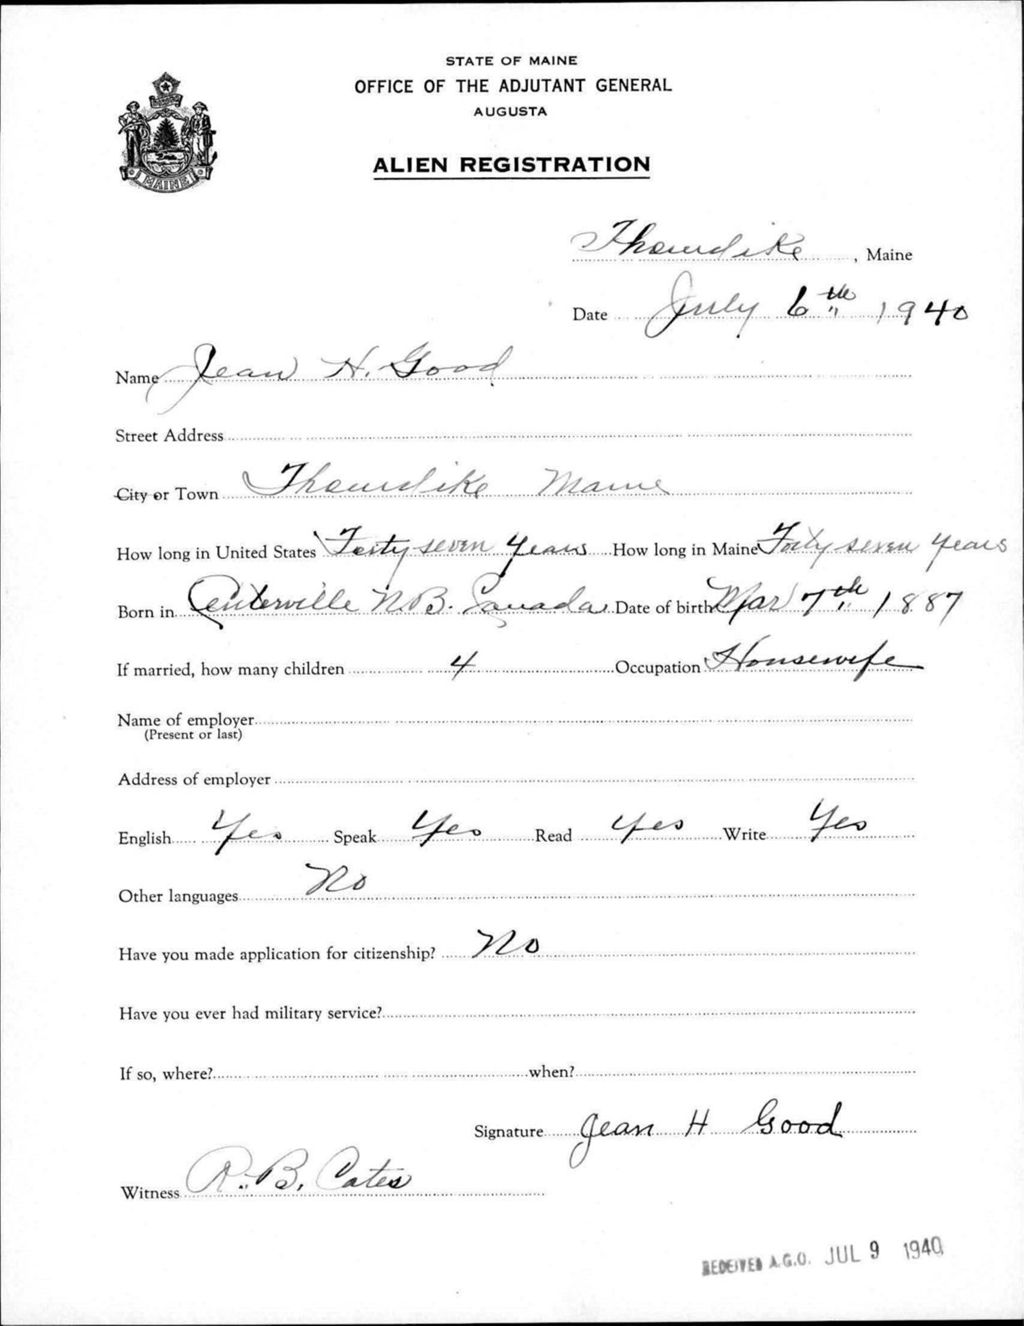 STATE OF MAINE
OFFICE OF THE ADJUTANT GENERAL
AUGUSTA
MAINE
ALIEN REGISTRATION
Thourdike, Maine
Date July 6th 1940
Name Jean H. Good
Street Address
City or Town Thourdike Maine
How long in United States Forty seven Years How long in Maine Forty seven Years
Born in Centerville N.B. Canada Date of birth Mar 7th 1887
If married, how many children 4 Occupation Housewife
Name of employer
(Present or last)
Address of employer
English Yes Speak Yes Read Yes Write Yes
Other languages No
Have you made application for citizenship? No
Have you ever had military service?
If so, where? when?
Signature Jean H Good
Witness R. B. Cates
RECEIVED A.G.O. JUL 9 1940